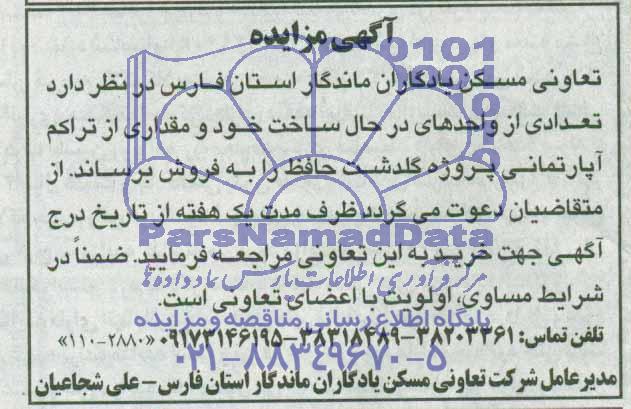 آگهی مزایده
تعاونی مسکن یادگاران ماندگار استان فارس در نظر دارد
تعدادی از واحدهای در حال ساخت خود و مقداری از تراکم
آپارتمانی پروژه گلدشت حافظ را به فروش برساند. از
متقاضیان دعوت می گردد ظرف مدت یک هفته از تاریخ درج
ParsNamadData
آگهی جهت خرید به این تعاونی مراجعه فرمایید. ضمناً در
مرکز فرآوری اطلاعات پارس نماد داده ها
شرایط مساوی، اولویت با اعضای تعاونی است.
پایگاه اطلاع رسانی مناقصه و مزایده
تلفن تماس: ۳۸۲۰۳۳۶۱-۳۸۳۱۸۴۸۹-۰۹۱۷۳۱۴۶۱۹۵ «۲۸۸۰-۱۱۰»
۰۲۱-۸۸۳۴۹۶۷۰-۵
مدیرعامل شرکت تعاونی مسکن یادگاران ماندگار استان فارس- علی شجاعیان